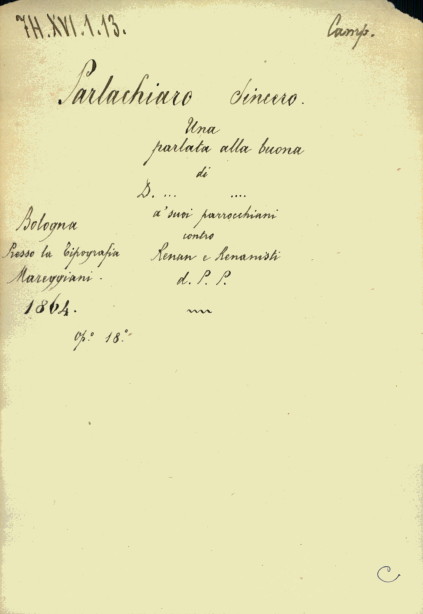 7H.XVI.1.13.
Camp.
Parlachiaro Sincero.
Una
parlata alla buona
di
D. ... ....
a' suoi parrocchiani
contro
Renan e Renanisti
d. P. P.
Bologna
Presso la Tipografia
Mareggiani.
1864.
op.º 18.º
C